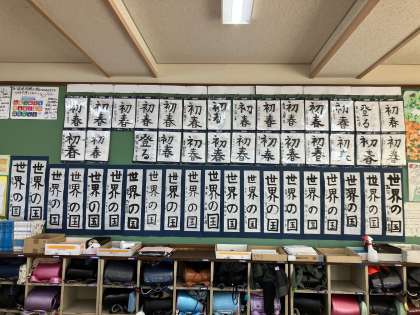 初春 初春 初春 初春 初春 初春 初春 初春 初春 初春 初春 初春 登る 初春
初春 初春 登る 初春 初春 初春 初春 初春 初春 初春 初春 初春 初春
世界の国 世界の国 世界の国 世界の国 世界の国 世界の国 世界の国 世界の国 世界の国 世界の国 世界の国 世界の国 世界の国 世界の国 世界の国 世界の国 世界の国 世界の国 世界の国 世界の国